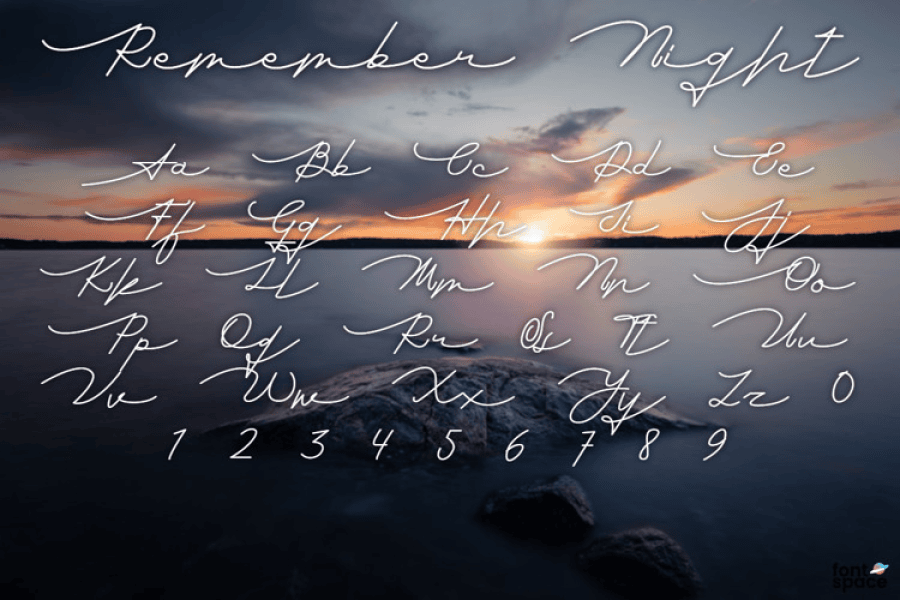 Remember Night
Aa Bb Cc Dd Ee
Ff Gg Hh Ii Jj
Kk Ll Mm Nn Oo
Pp Qq Rr Ss Tt Uu
Vv Ww Xx Yy Zz 0
1 2 3 4 5 6 7 8 9
font
space